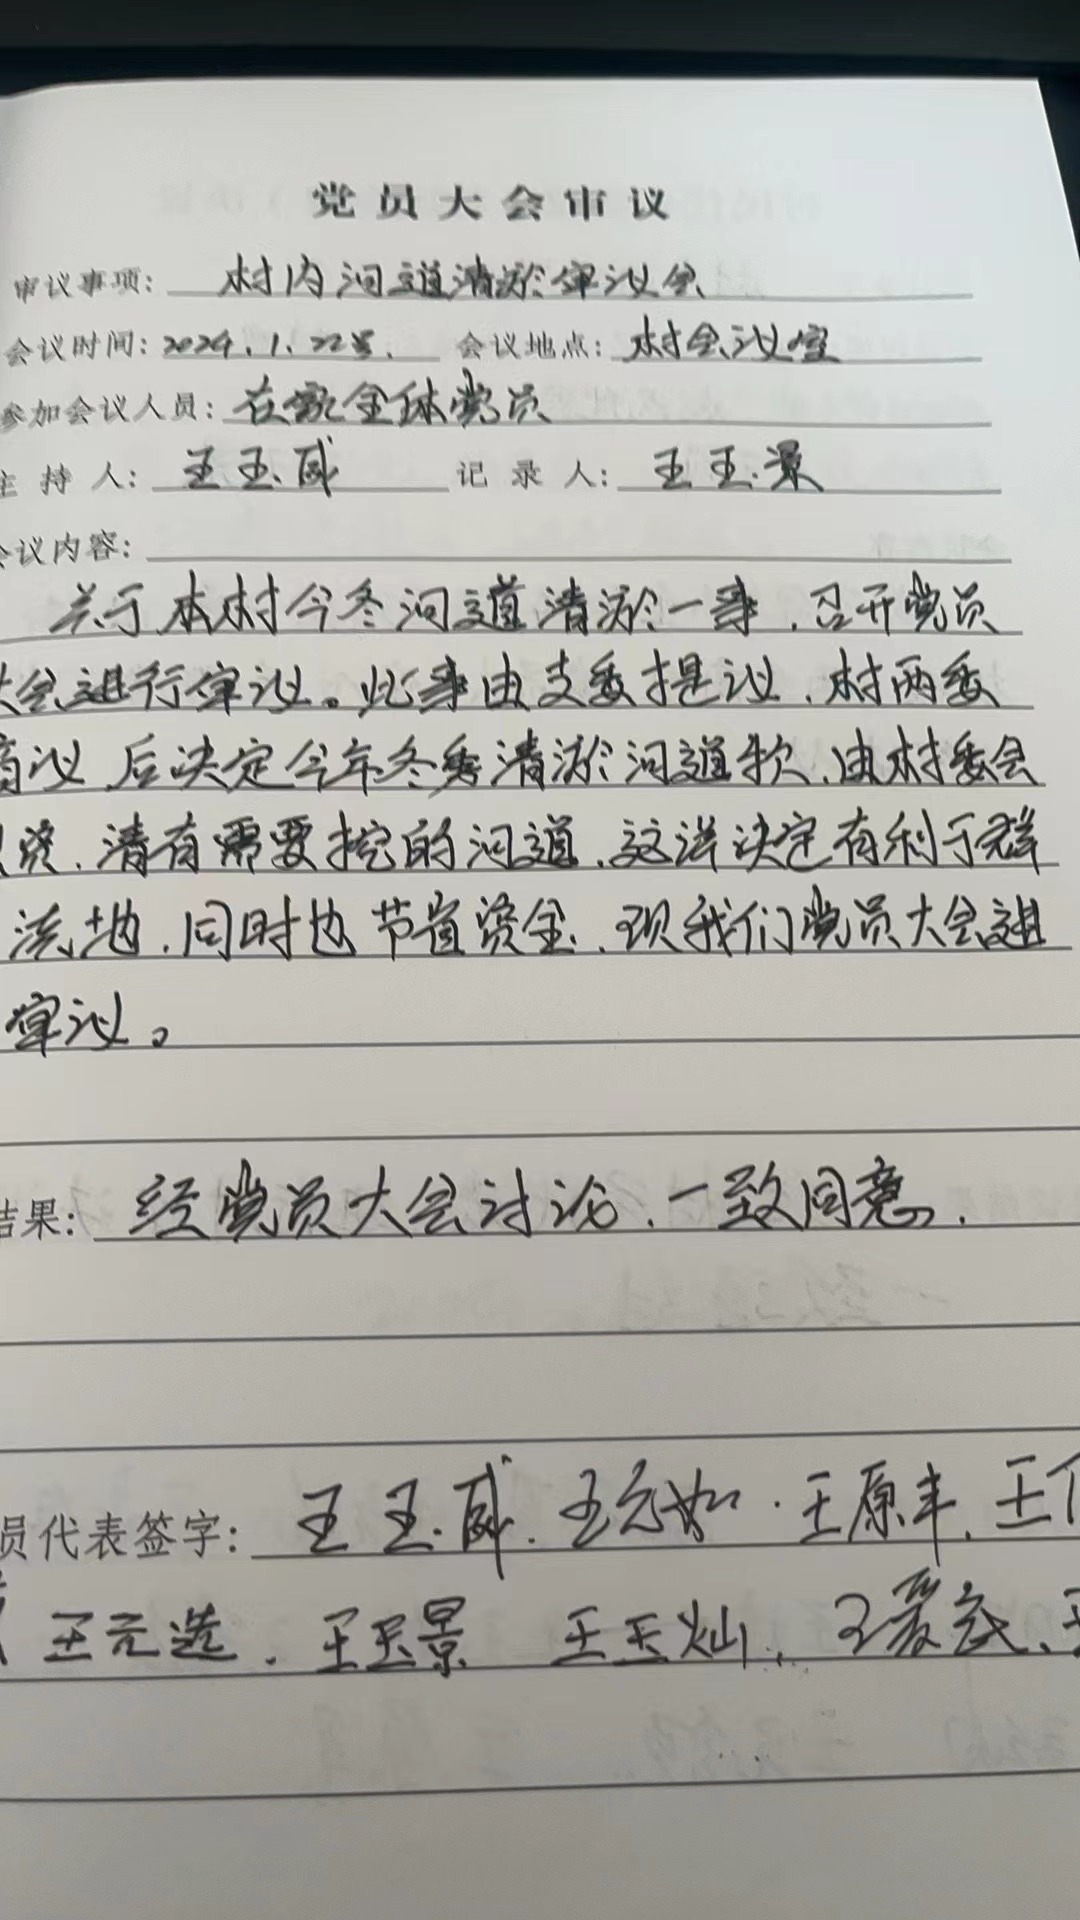 党员大会审议
审议事项: 村内河道清淤审议会
会议时间: 2024.1.22号. 会议地点: 村会议室
参加会议人员: 在家全体党员
主持人: 王玉成 记录人: 王玉景
会议内容:
关于本村今冬河道清淤一事,召开党员
大会进行审议。此事由支委提议,村两委
商议后决定今年冬季清淤河道款,由村委会
资,清有需要挖的河道,这洋决定有利于群
流地,同时也节省资金,现我们党员大会进
审议。
结果: 经党员大会讨论,一致同意,
员代表签字: 王玉成.王元如.王原丰.王
王元选. 王玉景 王玉灿. 王爱 .王